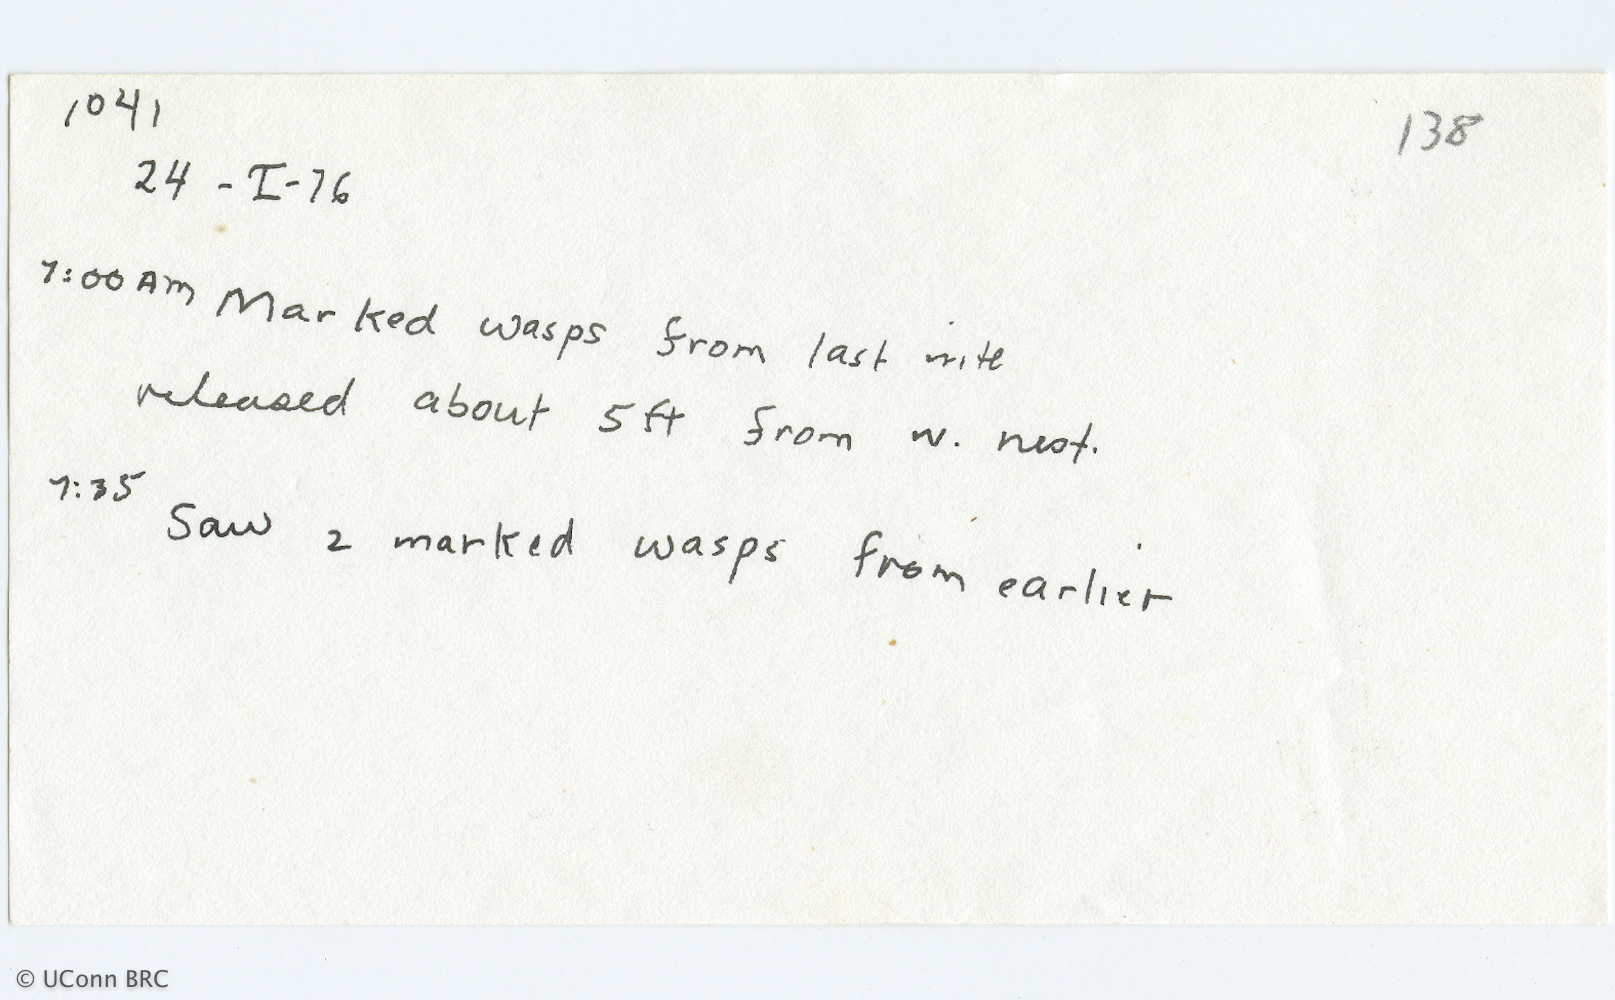 1041
138
24-I-76
7:00 AM Marked wasps from last nite
released about 5 ft from w. nest.
7:35 Saw 2 marked wasps from earlier
© UConn BRC